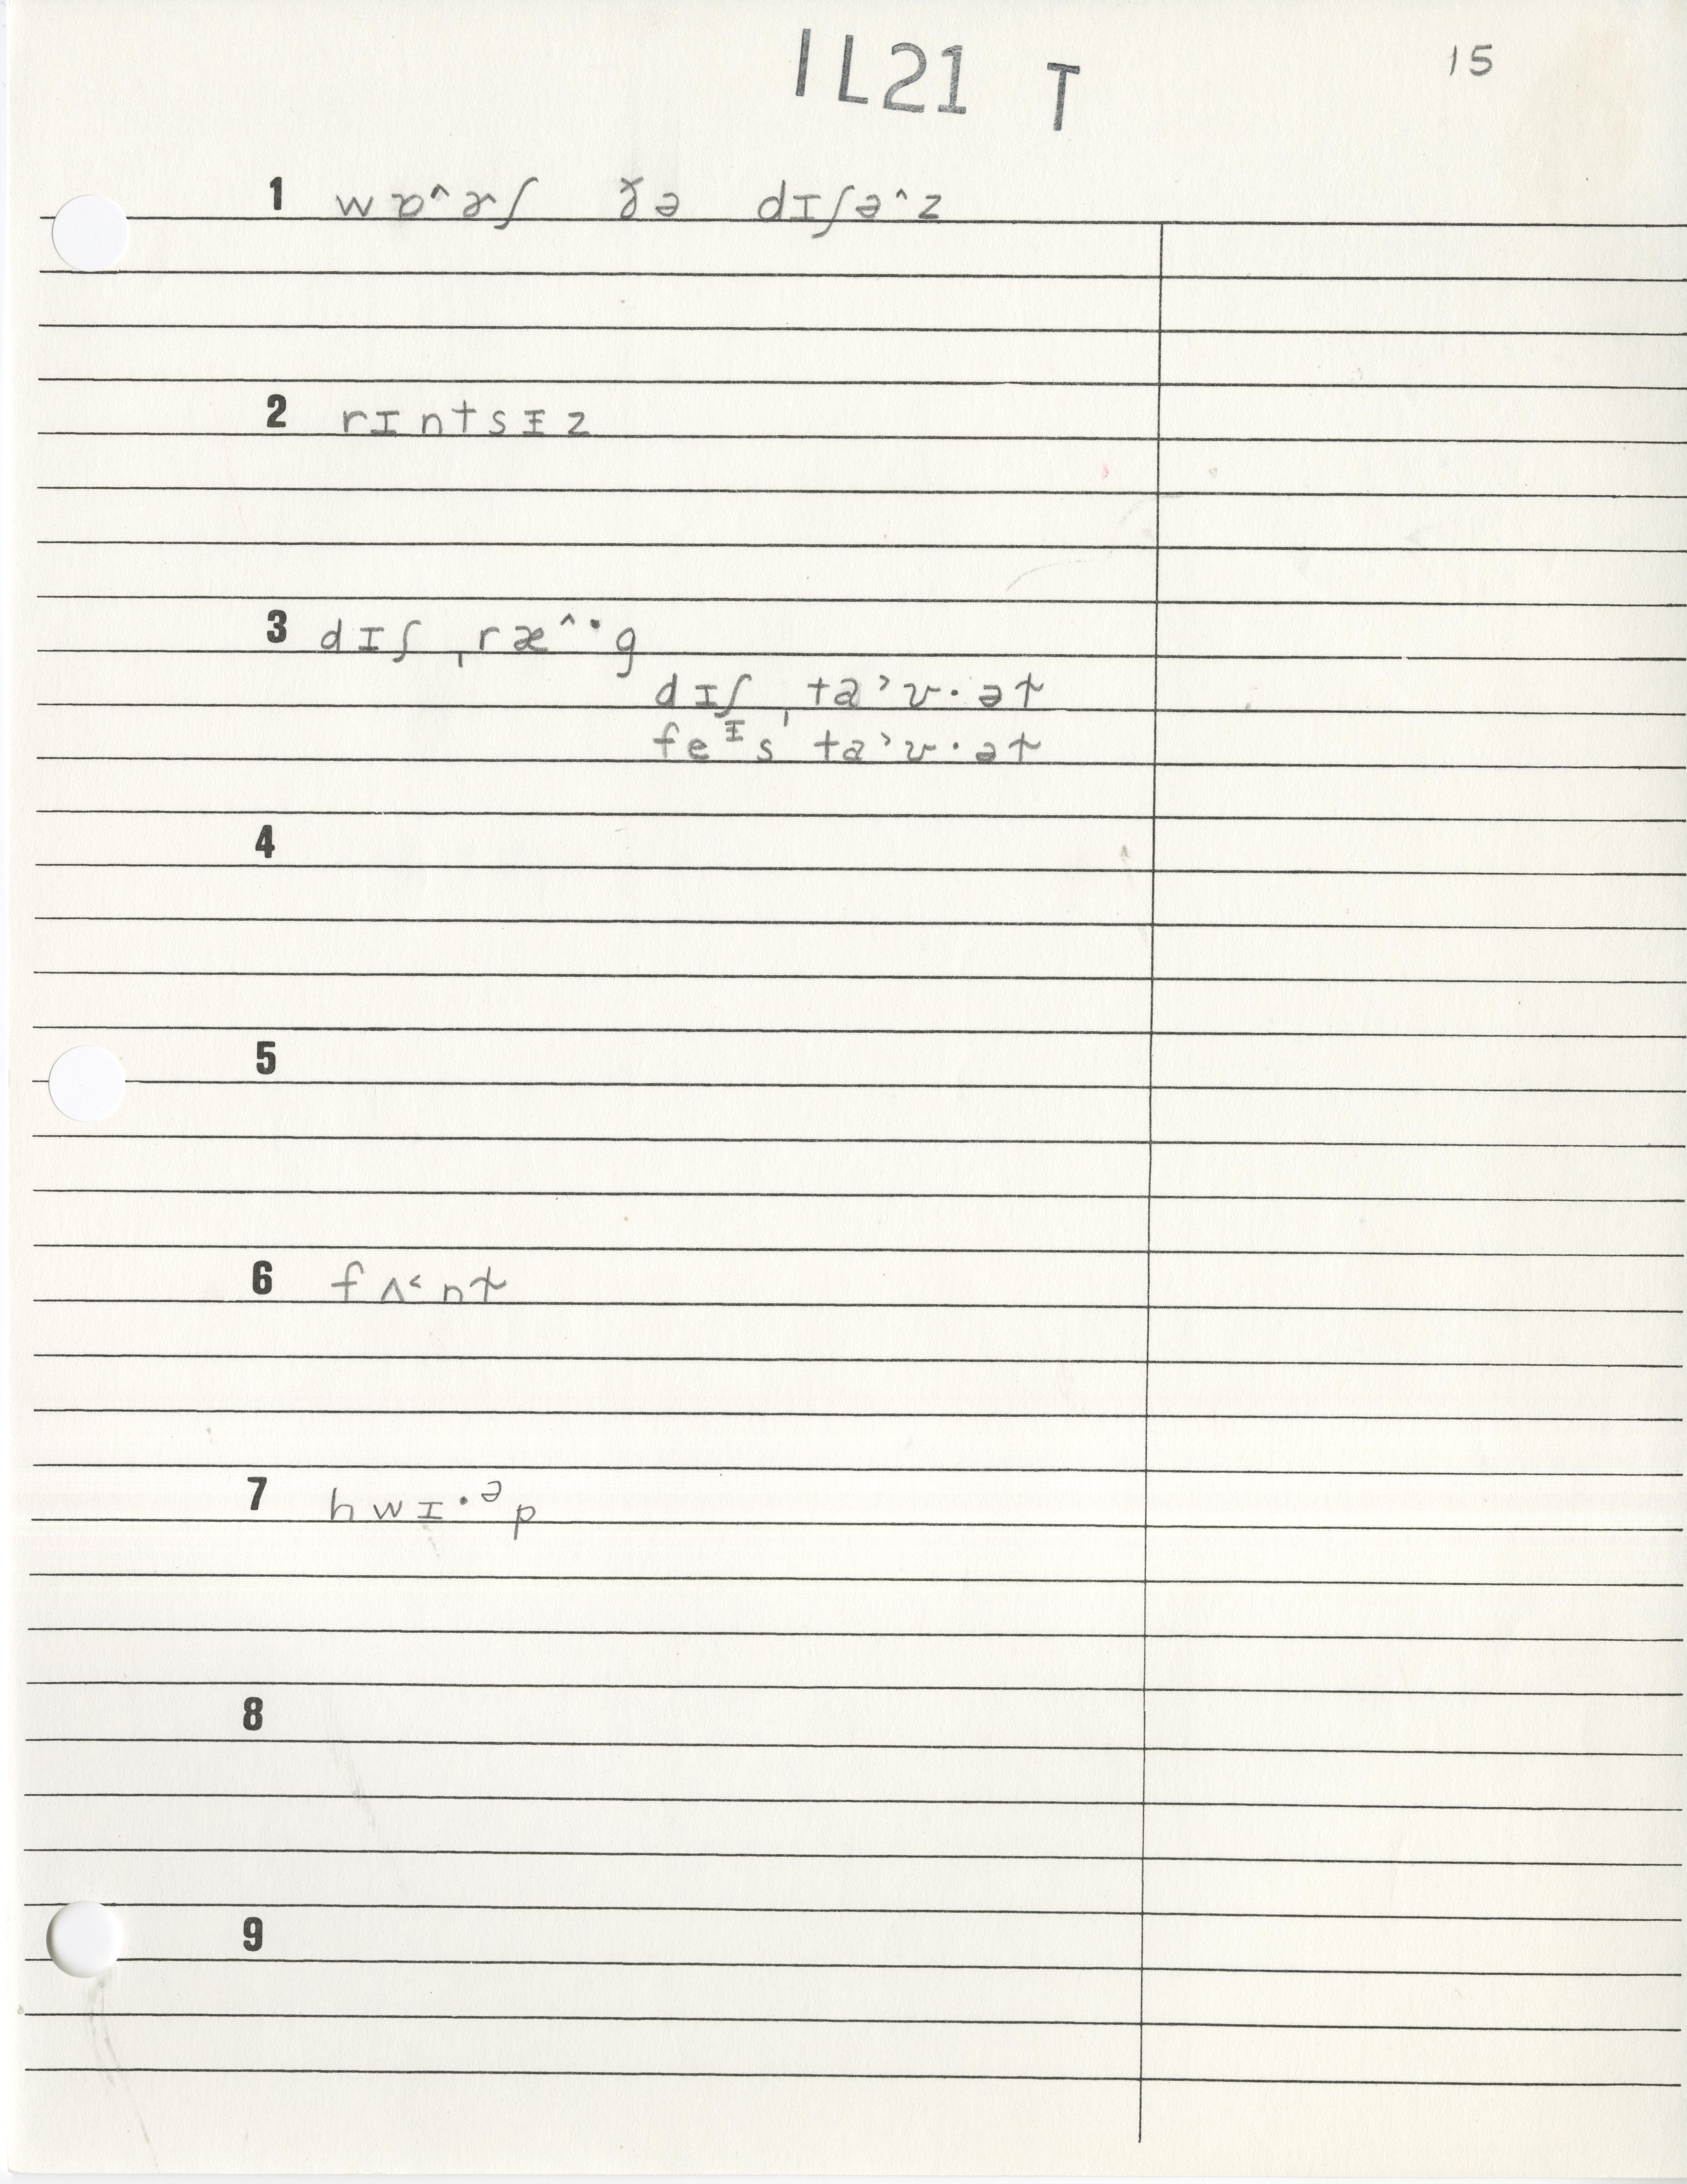 IL21 T
15
1 wɒ^ɚʃ ɣ̆ə dɪʃə^z
2 rɪntsᵻz
3 dɪʃˌræ^·g
dɪʃˌta>ʊ·əɫ
feᵻsˌta>ʊ·əɫ
4
5
6 fʌ<nɫ
7 hwɪ·ᵊp
8
9